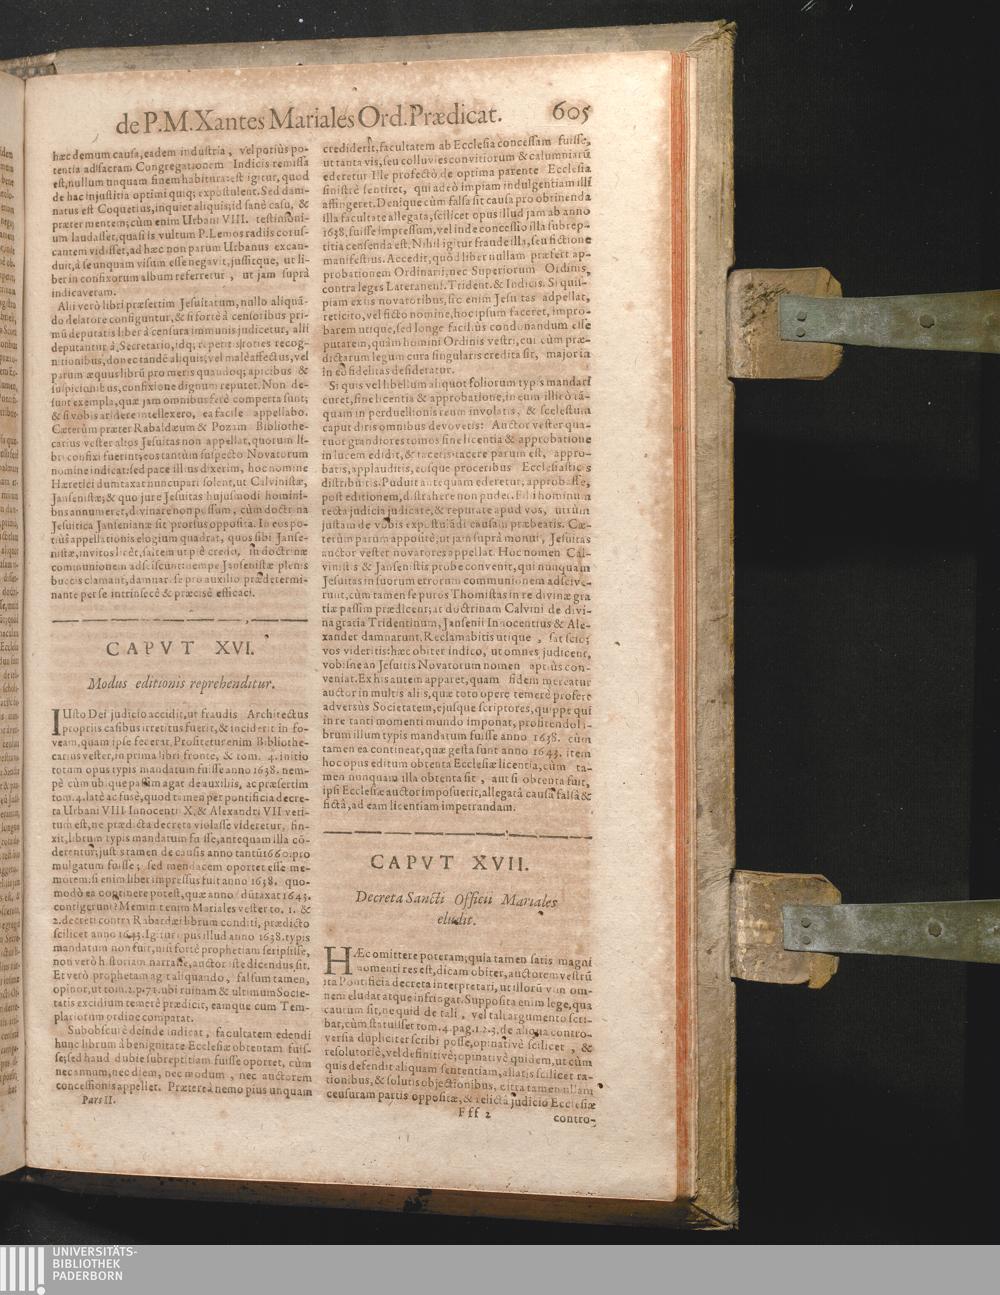 de P. M. Xantes Mariales Ord. Prædicat. 605
hæc demum causa, eadem industria, vel potiùs po-
tentia ad sacram Congregationem Indicis remissa
est, nullum unquam finem habitura: est igitur, quod
de hac injustitia optimi quiq; expostulent. Sed dam-
natus est Coquetius, inquiet aliquis; id sanè casu, &
præter mentem; cùm enim Urbani VIII. testimoni-
um laudasset, quasi is vultum P. Lemos radiis corus-
cantem vidisset, ad hæc non parum Urbanus excan-
duit, à se unquam visum esse negavit, jussitque, ut li-
ber in confixorum album referretur, ut jam suprà
indicaveram.
Alii verò libri præsertim Jesuitarum, nullo aliquã-
do delatore configuntur, & si fortè à censoribus pri-
mũ deputatis liber à censura immunis judicetur, alii
deputantur à Secretario, idq; repetitis toties recog-
nitionibus, donec tandẽ aliquis, vel malè affectus, vel
parum æquus librũ pro meris quandoq; apicibus &
suspicionibus, confixione dignum reputet. Non de-
sunt exempla, quæ jam omnibus ferè comperta sunt;
& si vobis arridere intellexero, ea facile appellabo.
Cæterùm præter Rabaldæum & Pozam Bibliothe-
carius vester altos Jesuitas non appellat, quorum li-
bri confixi fuerint; eos tantùm suspecto Novatorum
nomine indicat: sed pace illius dixerim, hoc nomine
Hæretici dumtaxat nuncupari solent, ut Calvinistæ,
Jansenistæ; & quo jure Jesuitas hujusmodi homini-
bns annumeret, divinare non possum, cùm doctrina
Jesuitica Jansenianæ sit prorsus opposita. In eos po-
tiùs appellationis elogium quadrat, quos sibi Janse-
nistæ, invitos licèt, saltem ut piè credo, in doctrinæ
communionem adsciscunt: nempe Jansenistæ plenis
buccis clamant, damnari se pro auxilio prædetermi-
nante per se intrinsecè & præcisè efficaci.
CAPVT XVI.
Modus editionis reprehenditur.
IUsto Dei judicio accidit, ut fraudis Architectus
propriis casibus irretitus fuerit, & inciderit in fo-
veam, quam ipse fecerat. Profitetur enim Bibliothe-
carius vester, in prima libri fronte, & tom. 4. initio
totum opus typis mandatum fuisse anno 1638. nem-
pè cùm ubique passim agat de auxiliis, ac præsertim
tom. 4. latè ac fusè, quod tamen per pontificia decre-
ta Urbani VIII Innocenti X. & Alexandri VII veti-
tum est, ne prædicta decreta violasse videretur, fin-
xit, librum typis mandatum fuisse, antequam illa cõ-
derentur; justis tamen de causis anno tantũ 1660. pro
mulgatum fuisse; sed mendacem oportet esse me-
morem. si enim liber impressus fuit anno 1638. quo-
modò ea continere potest, quæ anno dũtaxat 1643.
contigerunt? Meminit enim Mariales vester to. 1. &
2. decreti contra Rabardæi librum conditi, prædicto
scilicet anno 1643. Igitur opus illud anno 1638. typis
mandatum non fuit, nisi fortè prophetiam scripsisse,
non verò historiam narrasse, auctor iste dicendus sit.
Et verò prophetam agit aliquando, falsum tamen,
opinor, ut tom. 2. p. 71. ubi ruinam & ultimum Socie-
tatis excidium temerè prædicit, eamque cum Tem-
plariorum ordine comparat.
Subobscurè deinde indicat, facultatem edendi
hunc librum à benignitate Ecclesiæ obtentam fuis-
se; sed haud dubie subreptitiam fuisse oportet, cùm
nec annum, nec diem, nec modum, nec auctorem
concessionis appellet. Prætereà nemo pius unquam
Pars II.
crediderit, facultatem ab Ecclesia concessam fuisse,
ut tanta vis, seu colluvies convitiorum & calumniarũ
ederetur Ille profectò de optima parente Ecclesia
sinistrè sentiret, qui adeò impiam indulgentiam illi
affingeret. Denique cùm falsa sit causa pro obtinenda
illa facultate allegata, scilicet opus illud jam ab anno
1638. fuisse impressum, vel inde concessio illa subrep-
titia censenda est. Nihil igitur fraude illa, seu fictione
manifestius. Accedit, quòd liber nullam præfert ap-
probationem Ordinarii, nec Superiorum Ordinis,
contra leges Lateranensi. Trident. & Indicis. Si quis-
piam ex iis novatoribus, sic enim Jesuitas adpellat,
reticito, vel ficto nomine, hoc ipsum faceret, impro-
barem utique, sed longe faciliùs condonandum esse
putarem, quàm homini Ordinis vestri, cui cùm præ-
dictarum legum cura singularis credita sit, major ia
in eo fidelitas desideratur.
Si quis vel libellum aliquot foliorum typis mandari
curet, sine licentia & approbatione, in eum illicò tã-
quam in perduellionis reum involatis, & scelestum
caput diris omnibus devovetis: Auctor vester qua-
tuor grandiores tomos sine licentia & approbatione
in lucem edidit, & tacetis: tacere parum est, appro-
batis, applauditis, eosque proceribus Ecclesiasticis
distribuitis. Puduit antequam ederetur, approbasse,
post editionem, distrahere non pudet. Filii hominum
recta judicia judicate, & reputate apud vos, utrùm
justam de vobis expostulãdi causam præbeatis. Cæ-
terùm parum appositè, ut jam suprà monui, Jesuitas
auctor vester novatores appellat. Hoc nomen Cal-
vinistis & Jansenistis probe convenit, qui nunquam
Jesuitas in suorum errorum communionem adscive-
runt, cùm tamen se puros Thomistas in re divinæ gra
tiæ passim prædicent; at doctrinam Calvini de divi-
na gratia Tridentinum, Jansenii Innocentius & Ale-
xander damnarunt. Reclamabitis utique, sat scio;
vos videritis: hæc obiter indico, ut omnes judicent,
vobisne an Jesuitis Novatorum nomen aptiùs con-
veniat. Ex his autem apparet, quam fidem mereatur
auctor in multis aliis, quæ toto opere temerè profert
adversùs Societatem, ejusque scriptores, quippe qui
in re tanti momenti mundo imponat, profitendo li-
brum illum typis mandatum fuisse anno 1638. cùm
tamen ea contineat, quæ gesta sunt anno 1643. item
hoc opus editum obtenta Ecclesiæ licentia, cùm ta-
men nunquam illa obtenta sit, aut si obtenta fuit,
ipsi Ecclesiæ auctor imposuerit, allegatâ causâ falsâ &
fictâ, ad eam licentiam impetrandam.
CAPVT XVII.
Decreta Sancti Officii Mariales
eludit.
HÆc omittere poteram; quia tamen satis magni
momenti res est, dicam obiter, auctorem vestrũ
ita Pontificia decreta interpretari, ut illorũ vim om-
nem eludat atque infringat. Supposita enim lege, qua
cautum sit, ne quid de tali, vel tali argumento scri-
bat, cùm statuisset tom. 4. pag. 1. 2. 3. de aliqua contro-
versia dupliciter scribi posse, opinativè scilicet, &
resolutoriè, vel definitivè; opinativè quidem, ut cùm
quis defendit aliquam sententiam, allatis scilicet ra-
tionibus, & solutis objectionibus, citra tamen ullam
censuram partis oppositæ, & relicta judicio Ecclesiæ
Fff 2
contro-
UNIVERSITÄTS-
BIBLIOTHEK
PADERBORN